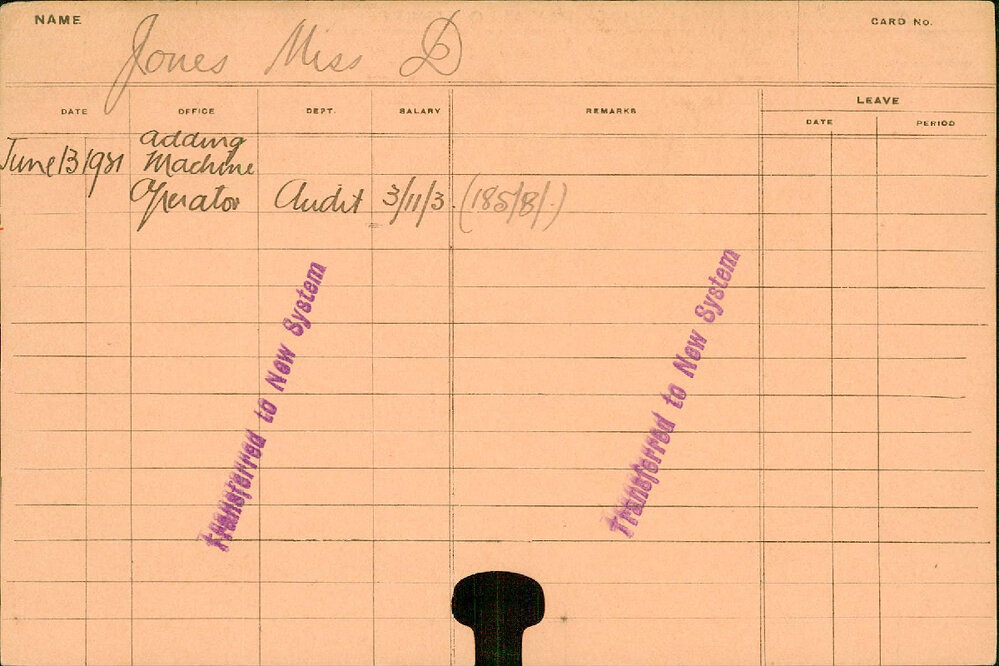 NAME
CARD No.
Jones Miss D
DATE OFFICE DEPT. SALARY REMARKS LEAVE
DATE PERIOD
June 13 1921 Adding
Machine
Operator Audit 3/11/3 (185/8/-)
Transferred to New System
Transferred to New System